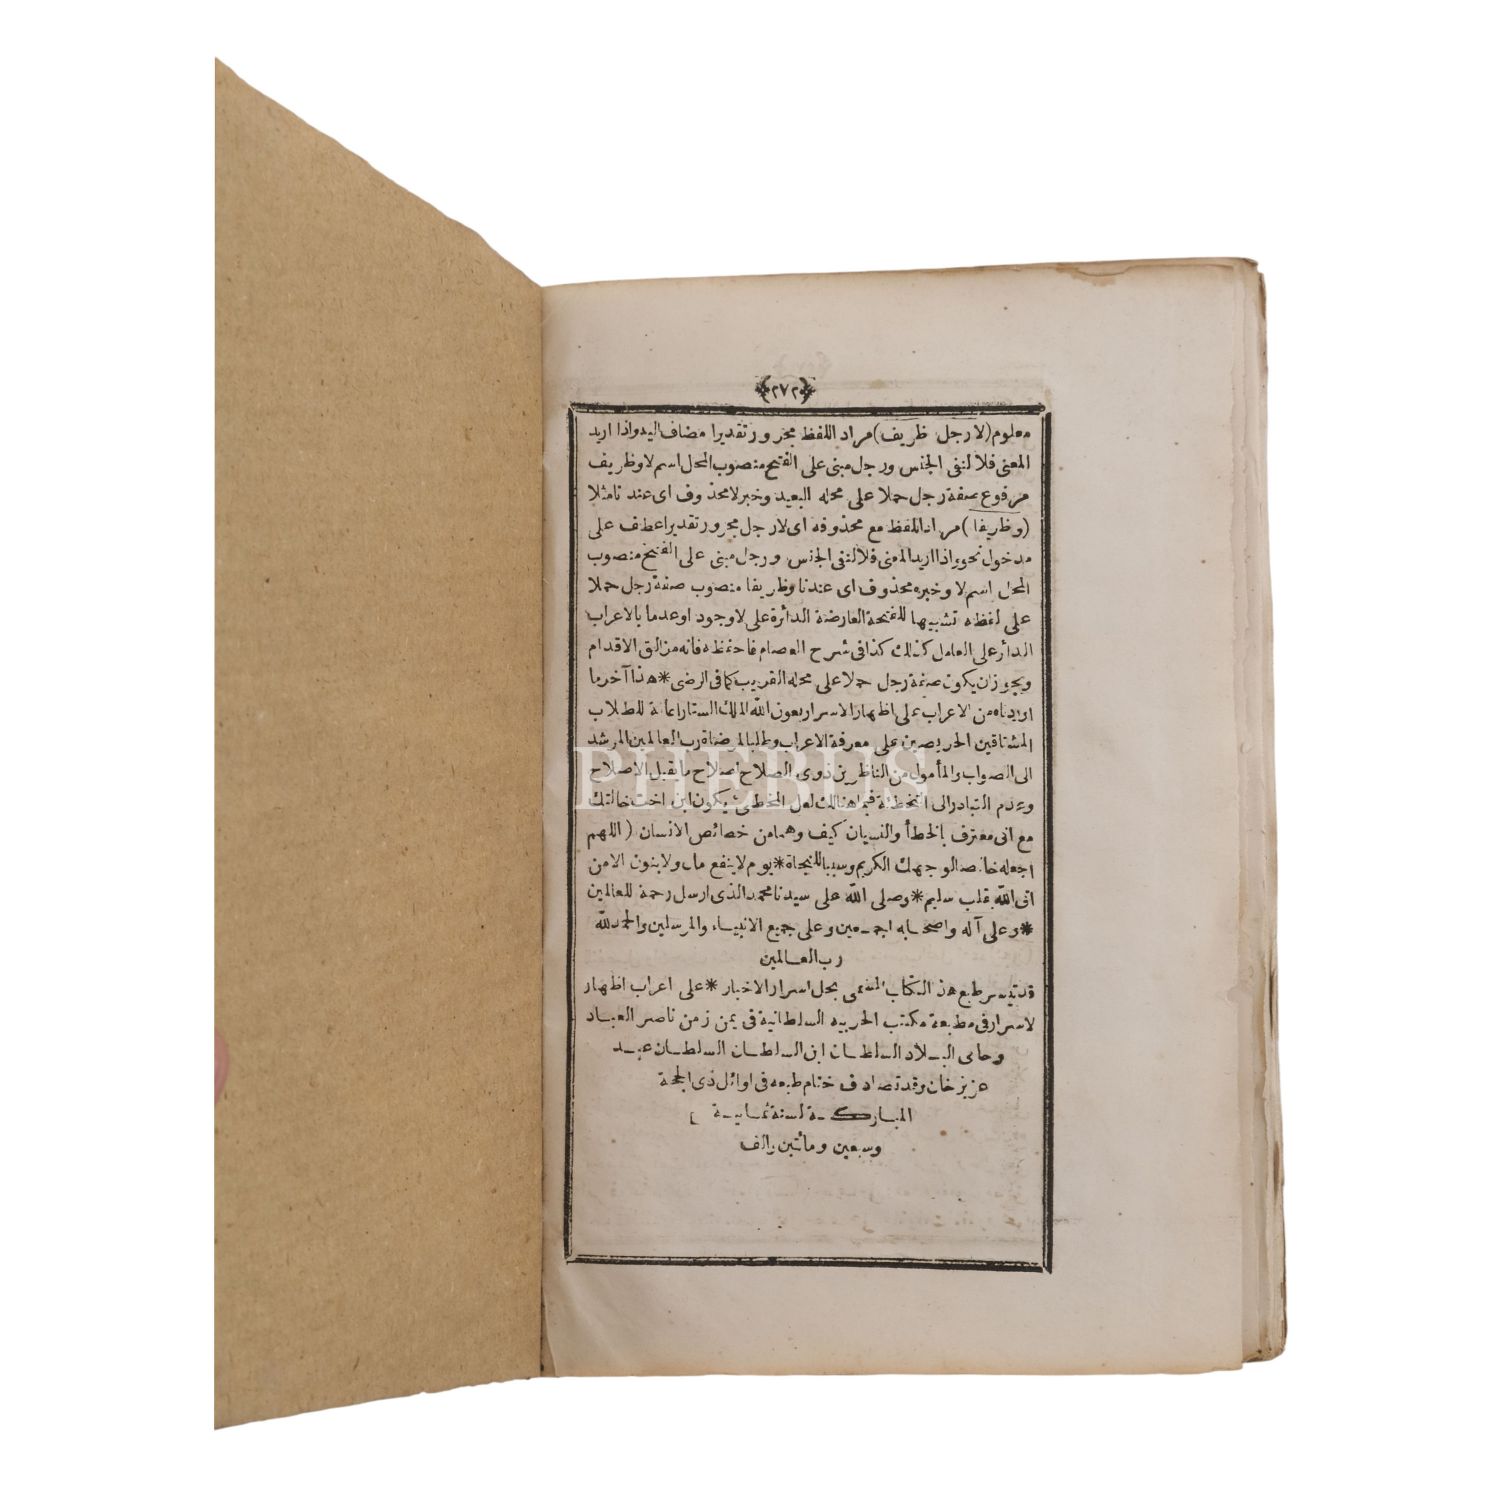 ﴿٢٧٢﴾
معلوم (لا رجل ظريف) مراد اللفظ مجرور تقديرا مضاف اليه واذا اريد
المعنى فلا لنفى الجنس ورجل مبنى على الفتح منصوب المحل اسم لا وظريف
مرفوع صفة رجل حملا على محله البعيد وخبر لا محذوف اى عندنا مثلا
(وظريفا) مراد اللفظ مع محذوفه اى لا رجل مجرور تقديرا عطف على
مدخول نحو واذا اريد المعنى فلا لنفى الجنس ورجل مبنى على الفتح منصوب
المحل اسم لا وخبره محذوف اى عندنا وظريفا منصوب صفة رجل حملا
على لفظه تشبيها للفتحة العارضة الدائرة على لا وجودا وعدما بالاعراب
الدائر على العامل كذلك كذا فى شرح العصام فاحفظه فانه مزالق الاقدام
ويجوز ان يكون صفة رجل حملا على محله القريب كما فى الرضى * هذا آخر ما
اردناه من الاعراب على اظهار الاسرار بعون الله الملك الستار اعانة للطلاب
المشتاقين الحريصين على معرفة الاعراب وطلبا لمرضاة رب العالمين المرشد
الى الصواب والمأمول من الناظرين ذوى الصلاح اصلاح ما يقبل الاصلاح
وعدم التبادر الى التخطئة فيما هنالك لعل المخطئ يكون ابن اخت خالتك
مع انى معترف بالخطأ والنسيان كيف وهما من خصائص الانسان (اللهم
اجعله خالصا لوجهك الكريم وسببا للنجاة * يوم لا ينفع مال ولا بنون الا من
اتى الله بقلب سليم * وصلى الله على سيدنا محمد الذى ارسل رحمة للعالمين
* وعلى آله واصحابه اجمعين وعلى جميع الانبياء والمرسلين والحمد لله
رب العالمين
قد تيسر طبع هذ الكتاب المسمى بحل اسرار الاخبار * على اعراب اظهار
لاسرار فى مطبعة مكتب الحربيه السلطانية فى يمن زمن ناصر العباد
وحامى البلاد السلطان ابن السلطان السلطان عبد
عزيز خان وقد تصادف ختام طبعه فى اوائل ذى الحجة
المباركة لسنة ثمانية
وسبعين ومائتين والف
PHEBUS